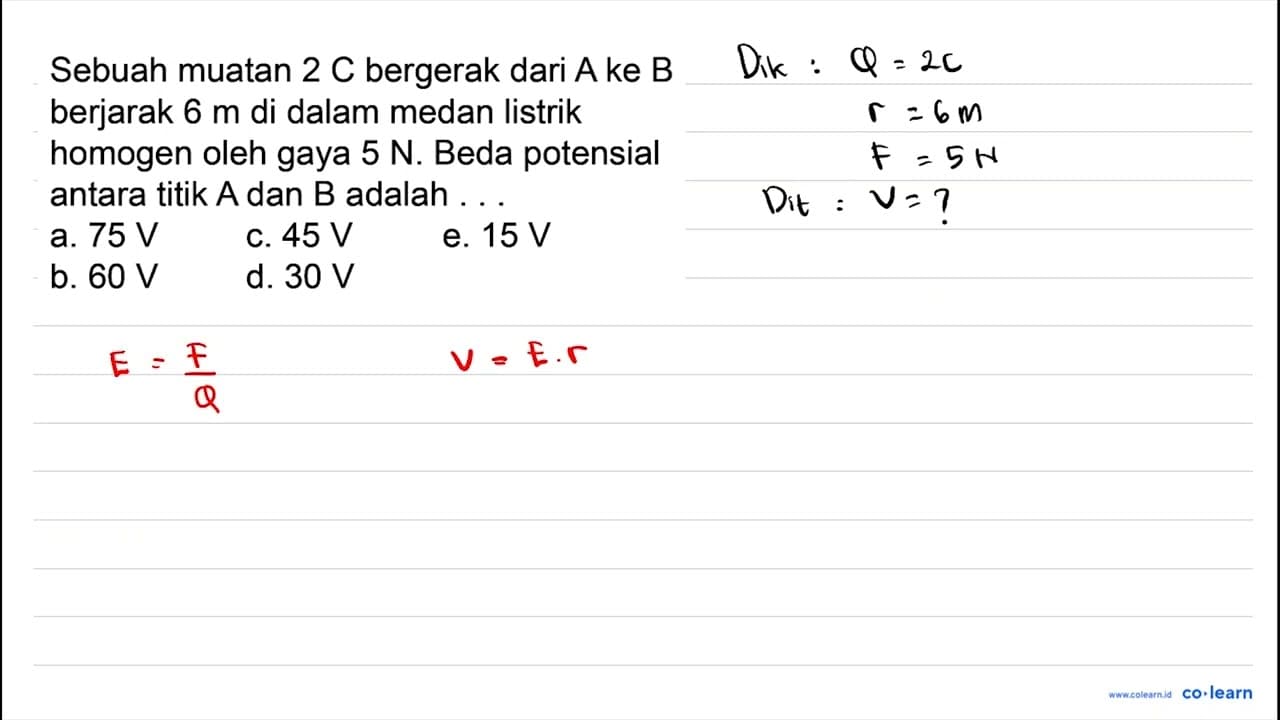 Sebuah muatan 2 C bergerak dari A ke B
berjarak 6 m di dalam medan listrik
homogen oleh gaya 5 N. Beda potensial
antara titik A dan B adalah . . .
a. 75 V c. 45 V e. 15 V
b. 60 V d. 30 V
Dik : Q = 2C
r = 6 m
F = 5 N
Dit : V = ?
E = F/Q
V = E . r
www.colearn.id co·learn